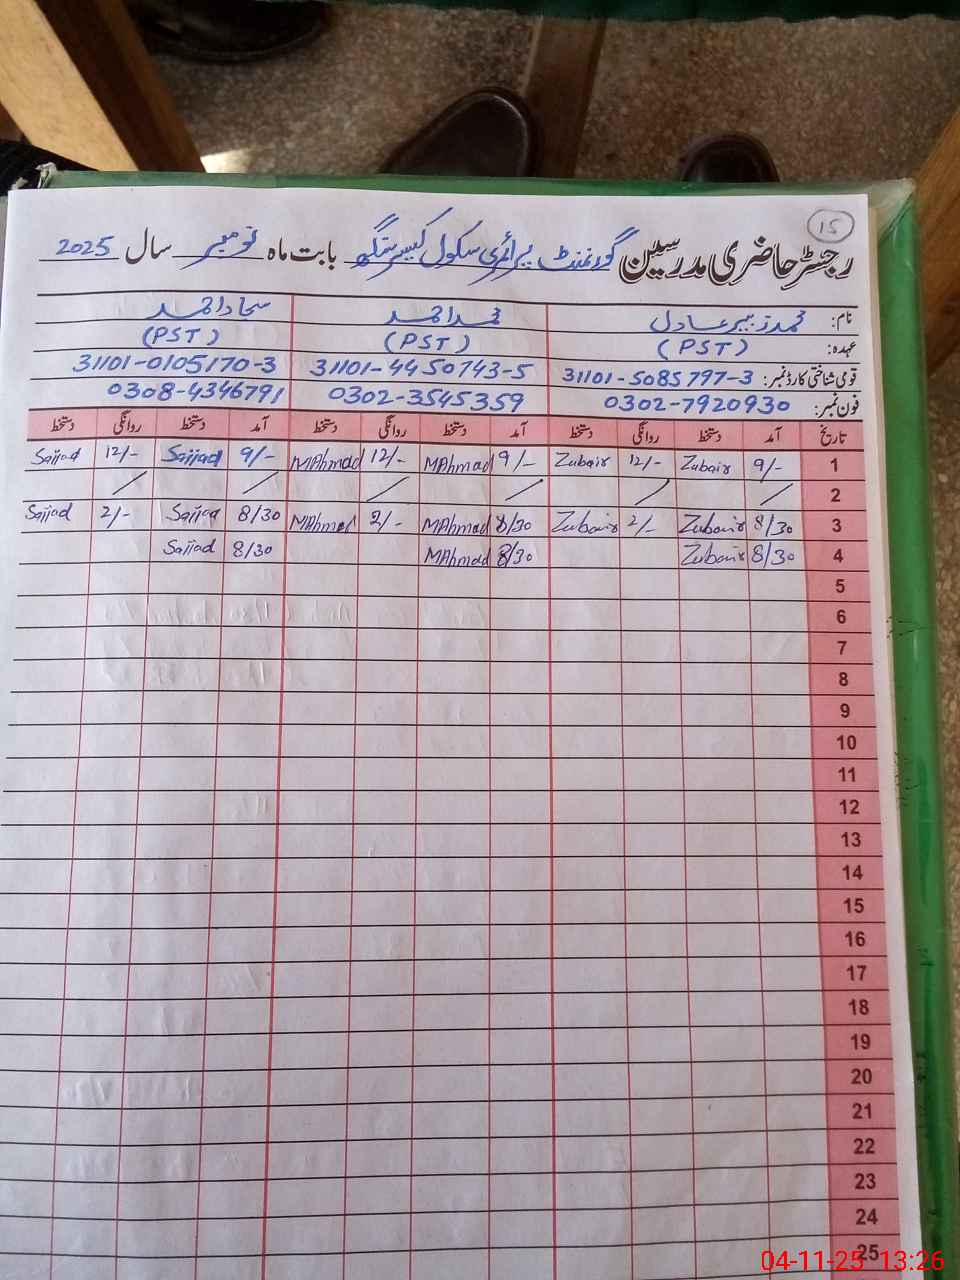 15
رجسٹر حاضری مدرسین گورنمنٹ پرائمری سکول بابت ماہ نومبر سال 2025
نام: محمد زبیر عادل محمد احمد سجاد احمد
عہدہ: (PST) (PST) (PST)
قومی شناختی کارڈ نمبر: 31101-5085797-3 31101-4450743-5 31101-0105170-3
فون نمبر: 0302-7920930 0302-3545359 0308-4346791
تاریخ آمد دستخط روانگی دستخط آمد دستخط روانگی دستخط آمد دستخط روانگی دستخط
1 9/- Zubair 12/- Zubair 9/- MAhmad 12/- MAhmad 9/- Sajjad 12/- Sajjad
2 / / / / / /
3 8/30 Zubair 2/- Zubair 8/30 MAhmad 2/- MAhmad 8/30 Sajjad 2/- Sajjad
4 8/30 Zubair 8/30 MAhmad 8/30 Sajjad
5
6
7
8
9
10
11
12
13
14
15
16
17
18
19
20
21
22
23
24
25
04-11-25 13:26